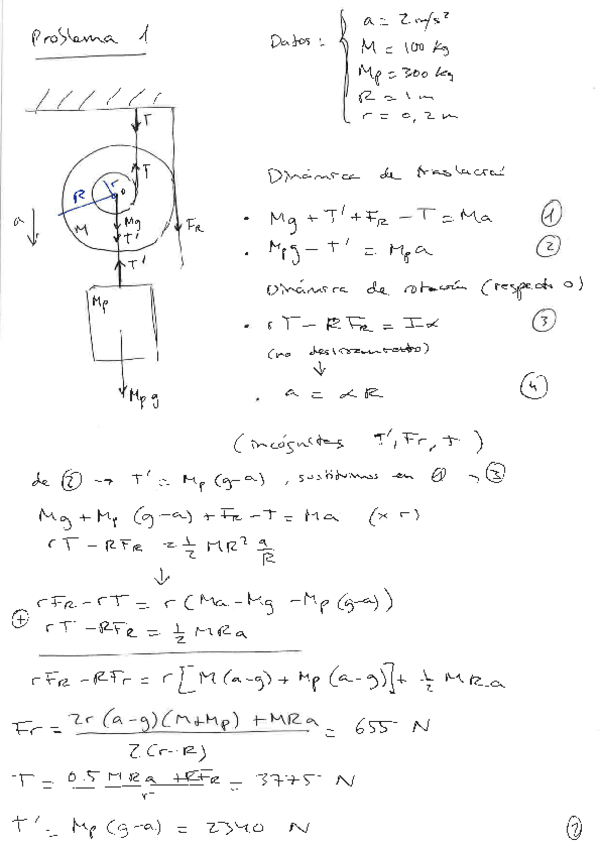 Problema 1
Datos:
a = 2 m/s²
M = 100 kg
Mp = 300 kg
R = 1 m
r = 0,2 m
T
T
r
o
R
a
M
Mg
T'
FR
T'
Mp
Mp g
Dinámica de traslación
· Mg + T' + FR - T = Ma ①
· Mpg - T' = Mpa ②
Dinámica de rotación (respecto o)
· rT - RFR = Iα ③
(no deslizamiento)
↓
· a = αR ④
(incógnitas T', Fr, T)
de ② → T' = Mp(g-a), sustituimos en ① y ③
Mg + Mp (g-a) + FR - T = Ma (x r)
rT - RFR = 1/2 MR² a/R
↓
rFR - rT = r(Ma - Mg - Mp(g-a))
⊕ rT - RFR = 1/2 MRa
rFR - RFr = r[M(a-g) + Mp(a-g)] + 1/2 MRa
Fr = 2r(a-g)(M+Mp) + MRa / 2(r-R) = 655 N
T = 0.5 MRa + RFR / r = 3775 N
T' = Mp(g-a) = 2340 N
②